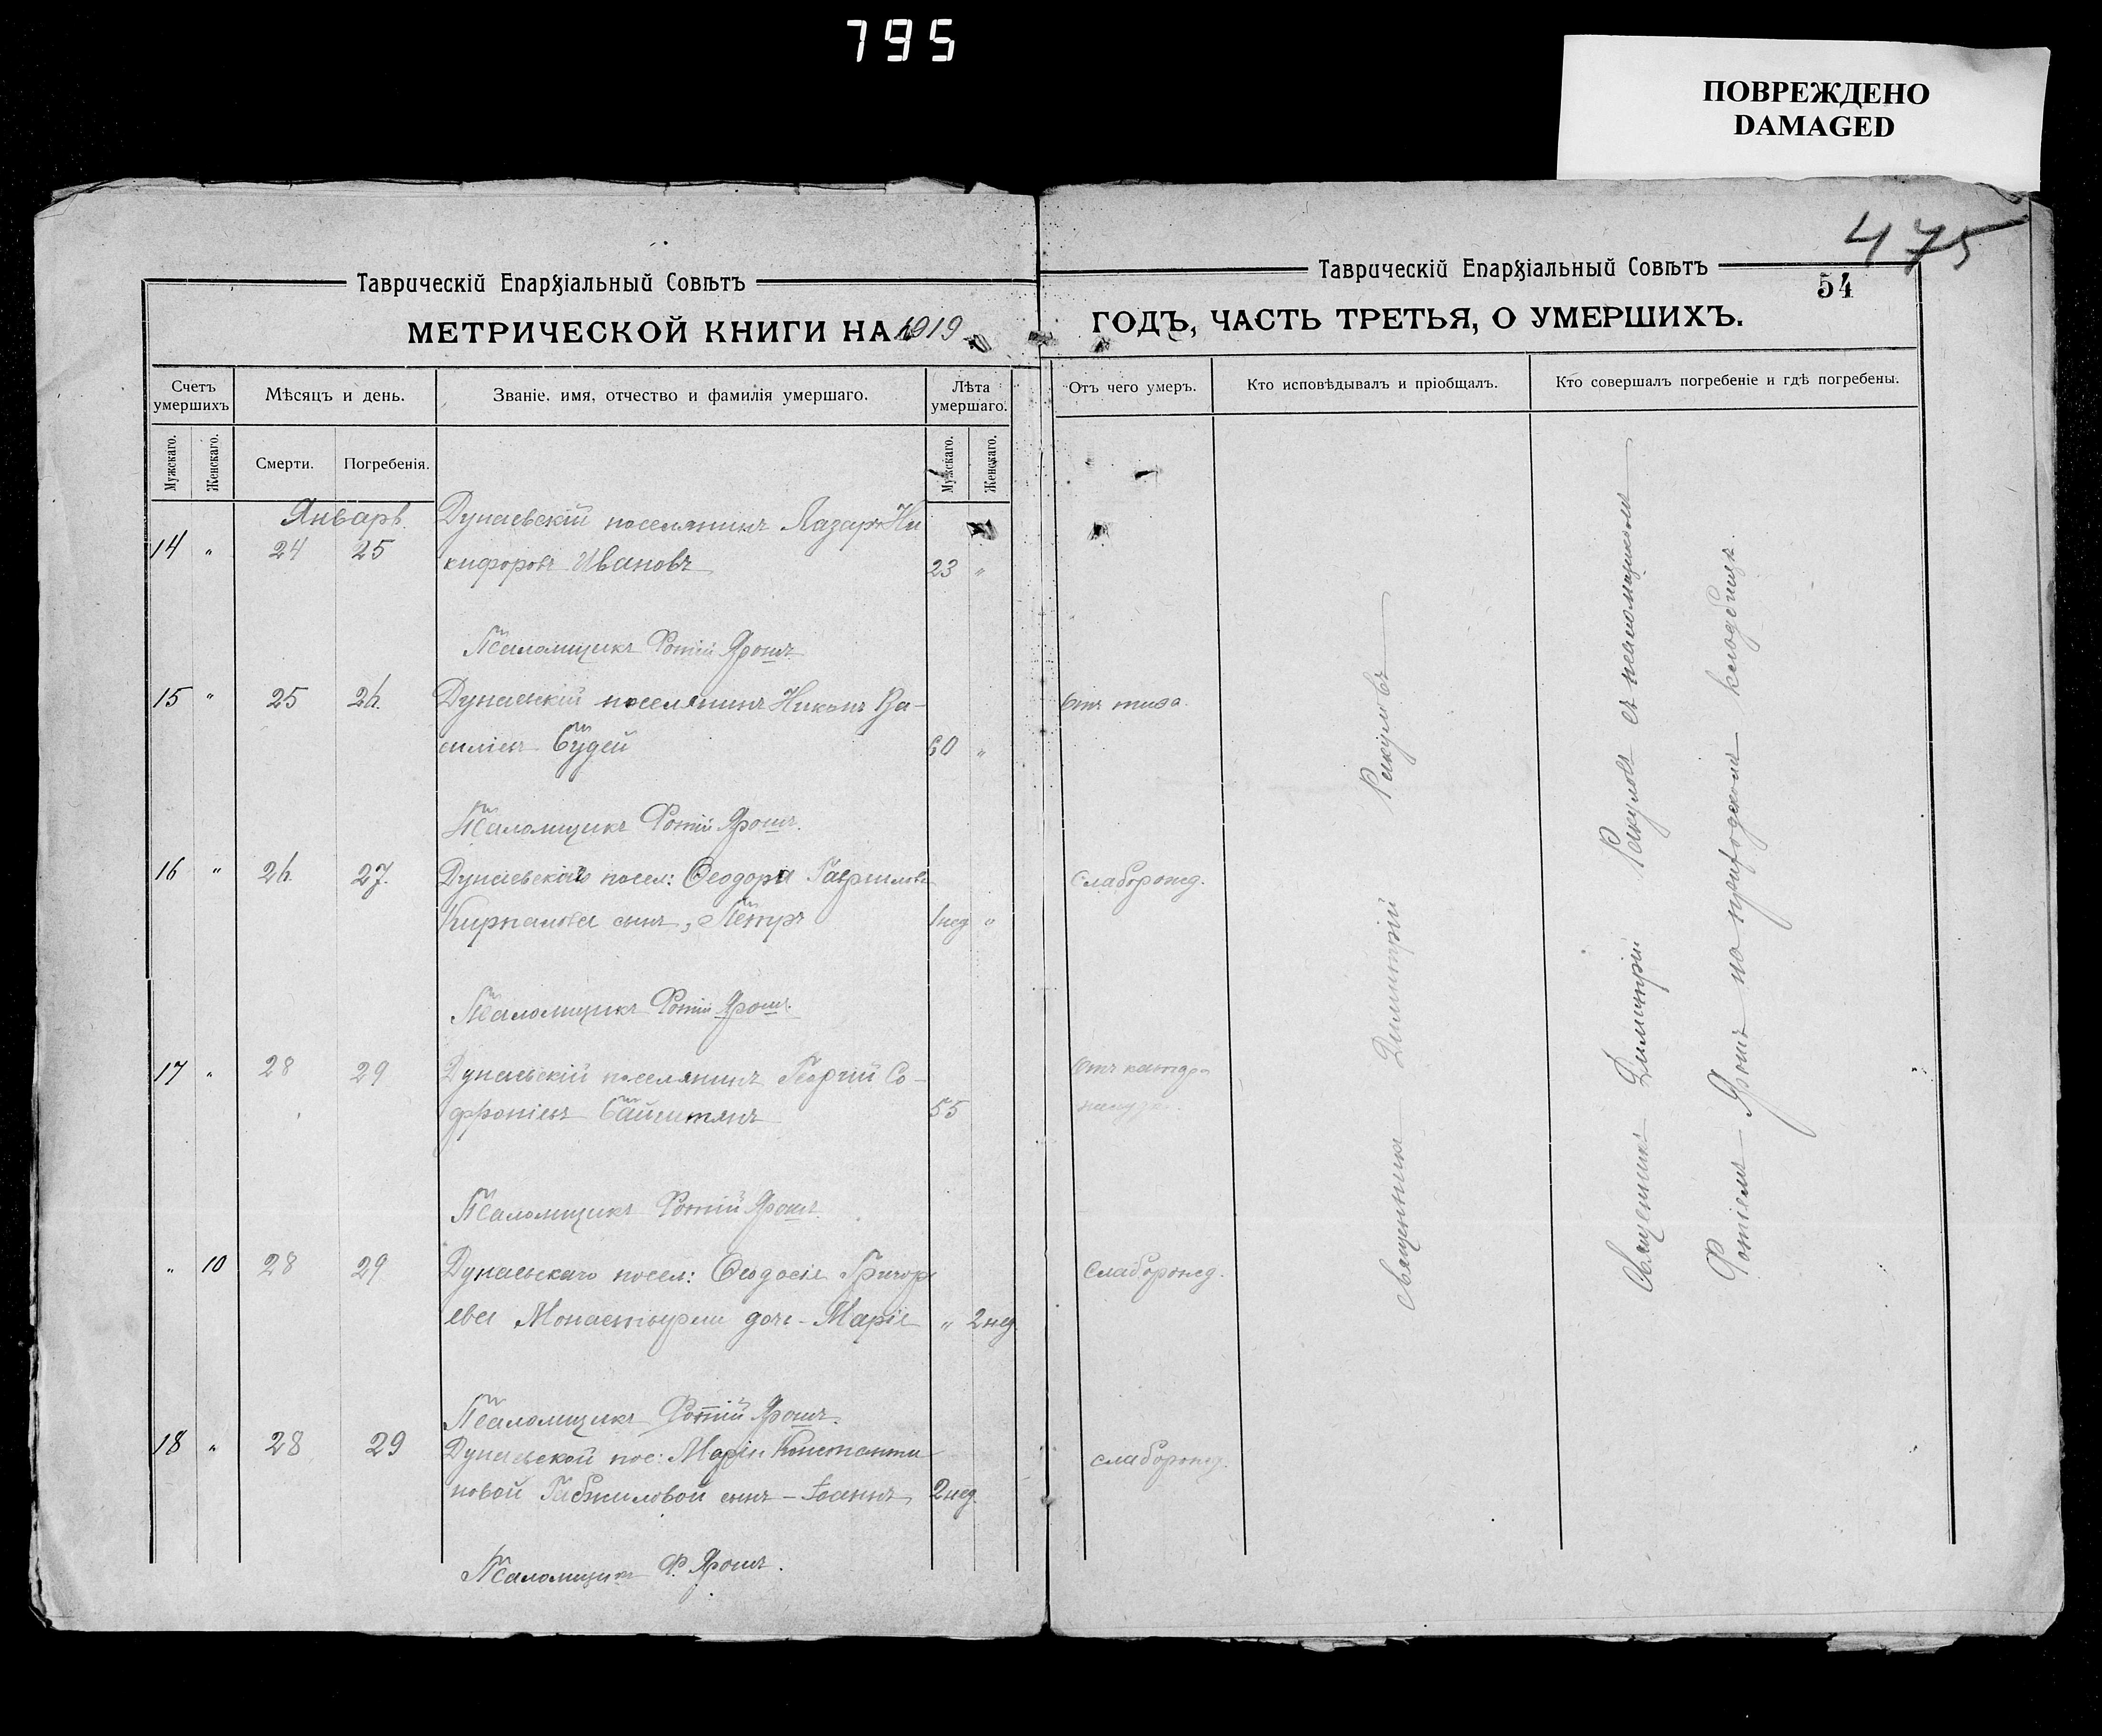 795
ПОВРЕЖДЕНО
DAMAGED
475
54
Таврическій Епархіальный Совѣтъ
МЕТРИЧЕСКОЙ КНИГИ НА 1919
Счетъ умершихъ
Мѣсяцъ и день.
Званіе, имя, отчество и фамилія умершаго.
Лѣта умершаго.
Мужскаго.
Женскаго.
Смерти.
Погребенія.
Мужскаго.
Женскаго.
Январь
Дунаевскій поселянинъ Лазарь Ни
14 " 24 25 кифоровъ Ивановъ 23 "
Псаломщикъ Фотій Ярошъ
15 " 25 26. Дунаевскій поселянинъ Никонъ Ва-
силіевъ 60 "
Псаломщикъ Фотій Ярошъ.
16 " 26. 27. Дунаевскаго посел: Ѳеодора Гаврилова
сынъ, Петръ 1нед "
Псаломщикъ Фотій Ярошъ.
17 " 28 29 Дунаевскій поселянинъ Георгій Со-
фроніевъ 55
Псаломщикъ Фотій Ярошъ.
" 10 28 29 Дунаевскаго посел: Ѳеодосія Григорь
ева дочь - Марія " 2нед.
Псаломщикъ Фотій Ярошъ.
18 " 28 29 Дунаевской пос: Маріи Константи
новой Гавриловой сынъ - Іоаннъ 2нед.
Псаломщикъ Ф. Ярошъ.
Таврическій Епархіальный Совѣтъ
ГОДЪ, ЧАСТЬ ТРЕТЬЯ, О УМЕРШИХЪ.
Отъ чего умеръ.
Кто исповѣдывалъ и пріобщалъ.
Кто совершалъ погребеніе и гдѣ погребены.
Отъ тифа.
слаборожд.
слаборожд.
слаборожд.
Священникъ Димитрій Ракуловъ
Священникъ Димитрій Ракуловъ съ псаломщикомъ
Фотіемъ Ярошъ на приходскомъ кладбищѣ.